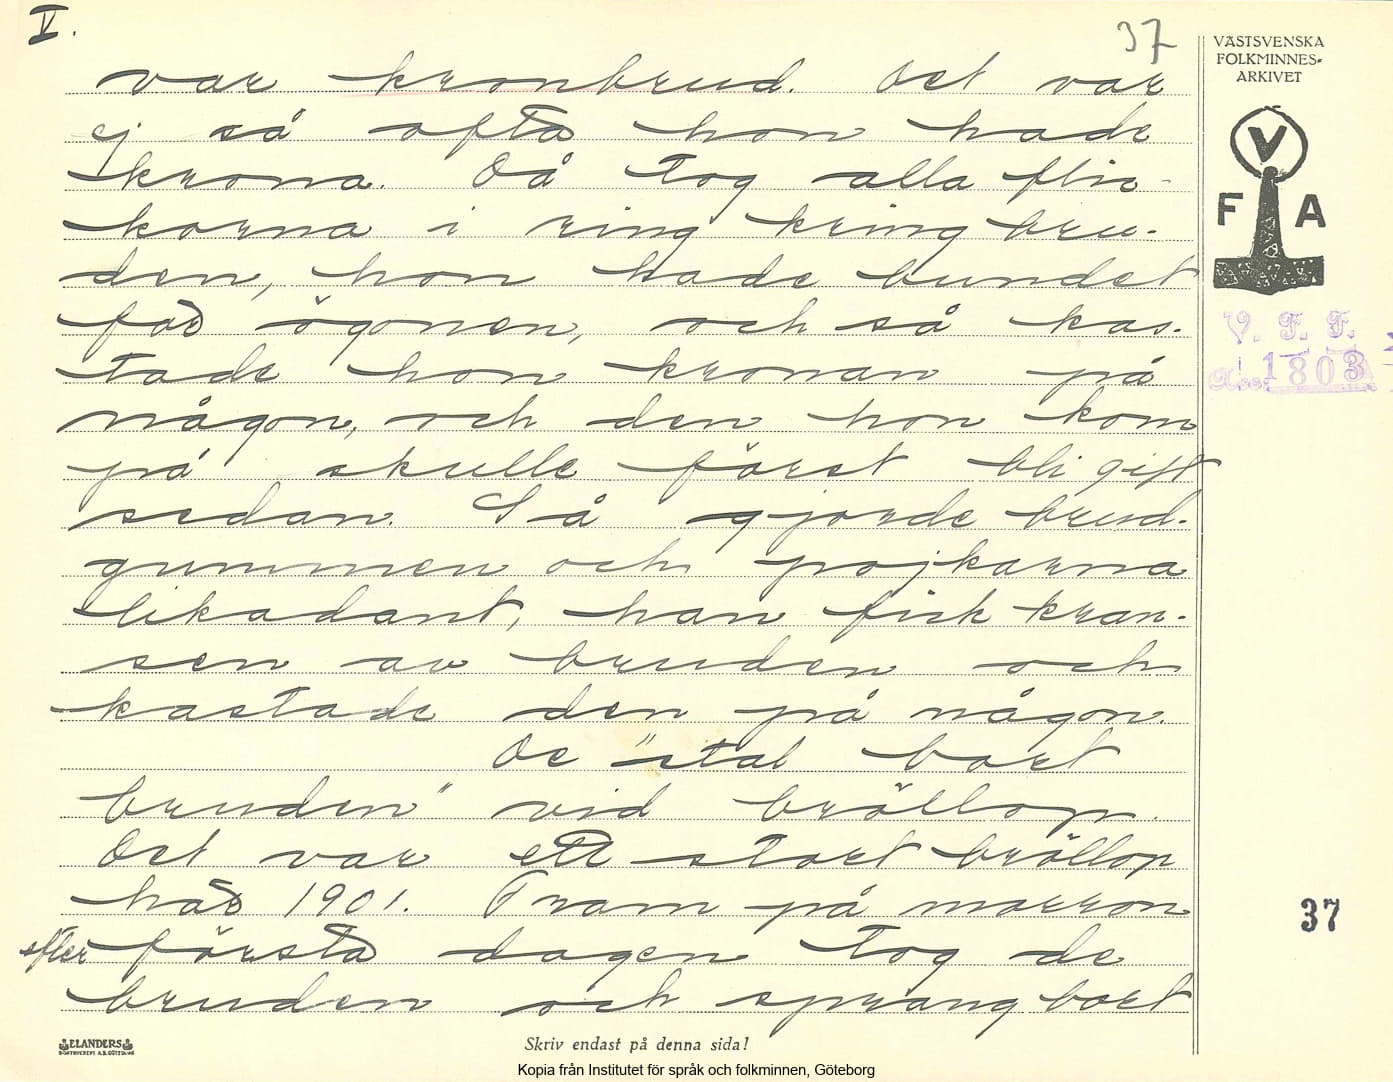 V.
37
VÄSTSVENSKA
FOLKMINNES-
ARKIVET
V
F A
V. F. F.
Acc. 1803
var kronbrud. Det var
ej så ofta hon hade
krona. Då tog alla flic-
korna i ring kring bru-
den, hon hade bundet
för ögonen, och så kas-
tade hon kronan på
någon, och den hon kom
på skulle först bli gift
sedan. Så gjorde brud-
gummen och pojkarna
likadant, han fick kran-
sen av bruden och
kastade den på någon.
De "stal bort
bruden" vid bröllop.
Det var ett stort bröllop
här 1901. Fram på morron
efter första dagen tog de
bruden och sprang bort
37
ELANDERS
Skriv endast på denna sida!
Kopia från Institutet för språk och folkminnen, Göteborg